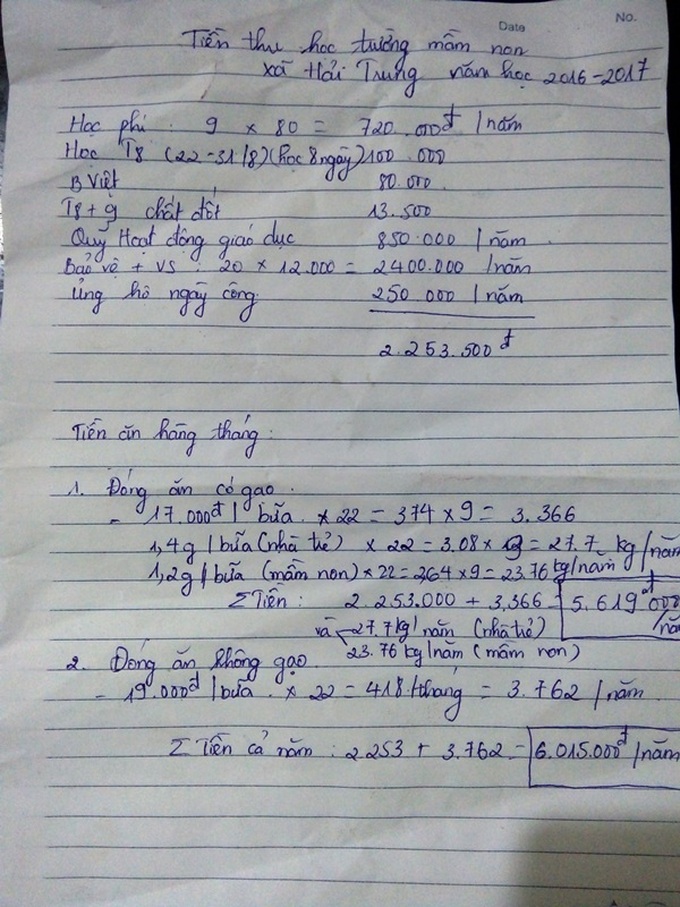 Date
No.
Tiền thu học tường mầm non
xã Hải Trung năm học 2016-2017
Học phí : 9 x 80 = 720.000đ /năm
Học T8 (22-31/8)(học 8 ngày) 100.000
B Việt 80.000
T8 + 9 chất đốt 13.500
Quỹ Hoạt động giáo dục 850.000 /năm
Bảo vệ + VS : 20 x 12.000 = 2400.000 /năm
Ủng hô ngày công 250.000 /năm
2.253.500đ
Tiền ăn hàng tháng :
1. Đóng ăn có gao .
- 17.000đ / bữa . x 22 = 374 x 9 = 3.366
1,4g / bữa (nhà trẻ) x 22 = 3.08 x 9 = 27.7 kg /năm
1,2g / bữa (mầm non) x 22 = 264 x 9 = 23.76 kg /năm
Σ Tiền : 2.253.000 + 3.366 = 5.619.000đ /năm
và 27.7 kg / năm (nhà trẻ)
23.76 kg /năm (mầm non)
2. Đóng ăn không gạo
- 19.000đ / bữa . x 22 = 418 /tháng = 3.762 /năm
Σ Tiền cả năm : 2.253 + 3.762 = 6.015.000đ /năm